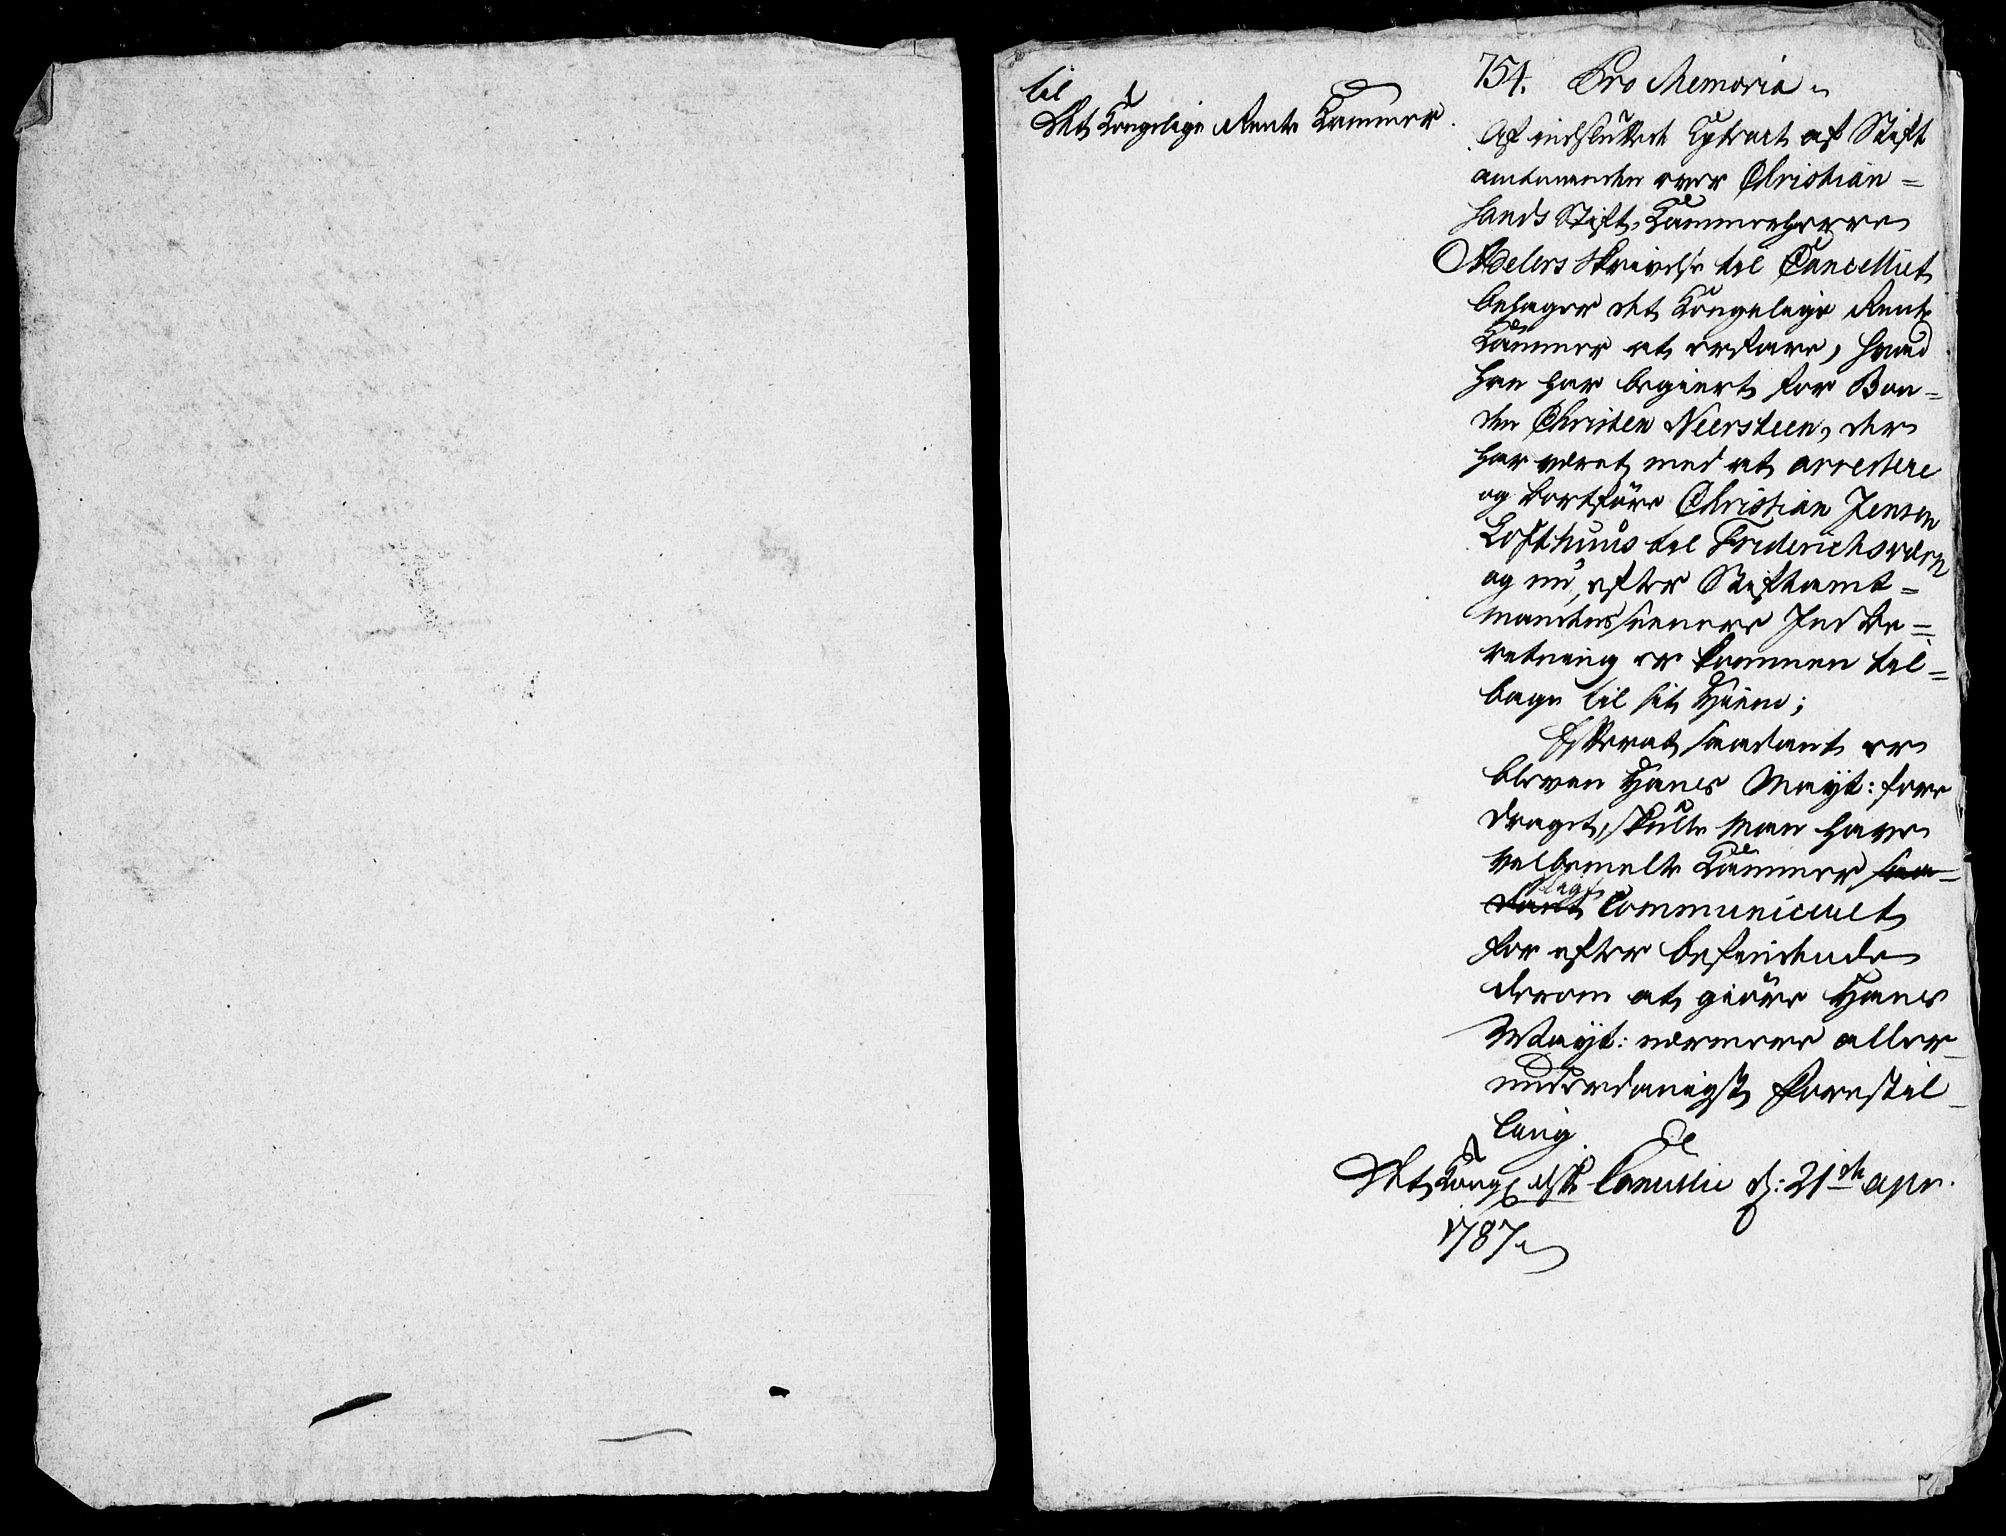 til
Det Kongelige Rente Kammer.
754. Pro Memoria
Af indsluttede Extract af Stift
amtmanden over Christian=
sands Stift, Kammerherre
Adelers Skrivelse til Cancelliet
behager det Kongelige Rente
Kammer at erfare, hvad
han har begiert for Bon=
den Christen Neersteen, der
har været med at arrestere
og bortføre Christian Jensen
Lofthuus til Friderichsværn
og nu, efter Stiftamt=
mandens senere Indbe=
retning er kommen til=
bage til sit Hiem;
Efterat saadant er
bleven Hans Mayt: fore
draget, skulle man have
velbemelte Kammer saa=
dant Communiceret
for efter befindende
derom at giøre Hans
Mayt: nærmere aller=
underdanigst Forestil=
ling.
Det Kongl. dske Cancellie d: 21de apr.
1787.